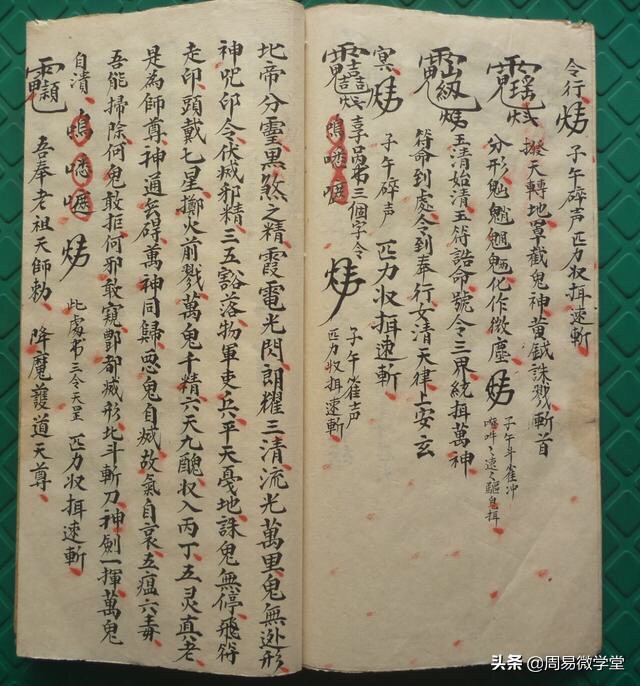 令行 子午碎声 匹力收捐速斬
撥天轉地罩截鬼神黃鉞誅戮斬首
分形魁魈魍魎化作微塵
子午斗雀冲
玉清始清玉符誥命號令三界統捐萬神
符命到處令到奉行女清天律上安玄
冥 子午碎声 匹力收捐速斬
三個字令 子午雀声
匹力收捐速斬
北帝分霊黑煞之精霞電光閃朗耀三清流光萬里鬼無逃形
神咒印令伏滅邪精三五豁落物軍吏兵平天憂地誅鬼無停飛符
走印頭戴七星擲火前戮萬鬼千精六天九醜収入丙丁五灵真老
是為師尊神通無碍萬神同歸惡鬼自滅故氣自哀五瘟六毒
吾能掃除何鬼敢拒何邪敢窺酆都滅形北斗斬刀神劍一揮萬鬼
自潰 此處書三令天呈 匹力收捐速斬
吾奉老祖天師勅 降魔護道天尊
头条 @周易微学堂